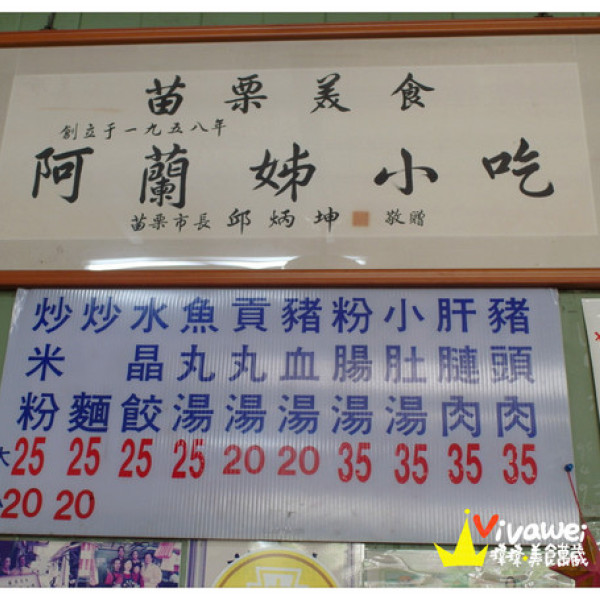 苗栗美食
創立于一九五八年
阿蘭姊小吃
苗栗市長 邱炳坤 敬贈
炒米粉 大25 20
炒麵 25 20
水晶餃 25
魚丸湯 25
貢丸湯 20
豬血湯 20
粉腸湯 35
小肚湯 35
肝膁肉 35
豬頭肉 35
Vivawei